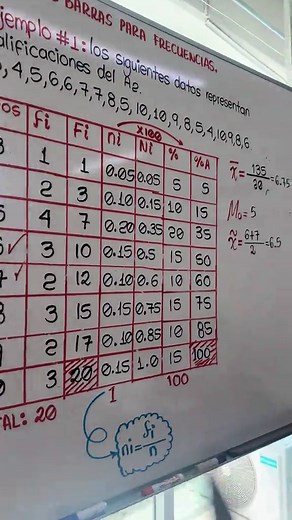 BARRAS PARA FRECUENCIAS.
jemplo #1: los siguientes datos representan
alificaciones del
, 4, 5, 6, 6, 7, 7, 8, 5, 10, 10, 9, 8, 5, 4, 10, 9, 8, 6
x100
os fi Fi ni Ni % %A
3 1 1 0.05 0.05 5 5
2 3 0.10 0.15 10 15
5 4 7 0.20 0.35 20 35
6 ✓ 3 10 0.15 0.5 15 50
7 ✓ 2 12 0.10 0.6 10 60
8 3 15 0.15 0.75 15 75
9 2 17 0.10 0.85 10 85
0 3 20 0.15 1.0 15 100
AL: 20 1 100
ni = fi/n
x̄ = 135/20 = 6.75
Mo = 5
x̃ = 6+7/2 = 6.5